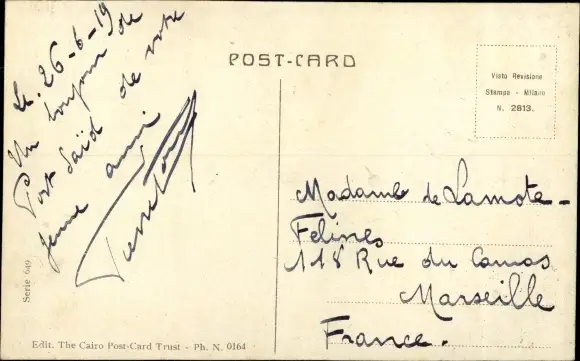 POST-CARD
Visto Revisione
Stampa - Milano
N. 2813.
Le. 26-6-19
Un bonjour de
Port Saïd de votre
jeune ami
Madame de Lamote-
Felines
118 Rue du Camas
Marseille
France.
Serie 649
Edit. The Cairo Post-Card Trust - Ph. N. 0164